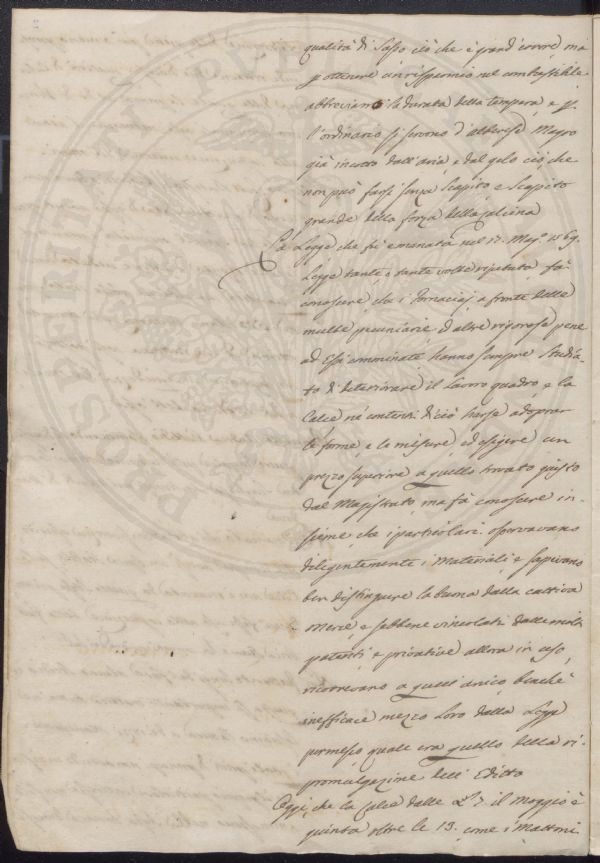 2
qualità di Sasso ciò che è grand'errore ma
p ottenere un risparmio nel combustibile
abbreviano la durata della tempera, e p.
l'ordinario si servono d'alberese Magro
già incotto dall'aria, e dal gelo ciò che
non può farsi senza Scapito, e Scapito
grande della forza della Calcina
La Legge che fù emanata nel 17. Mag.o 1569.
Legge tante, e tante volte ripetuta fà
conoscere, che i Fornaciaj a fronte delle
multe pecuniarie, ed altre rigorose pene
ad Essi comminate hanno sempre studia-
to di deteriorare il Lavoro quadro, e la
Calce né contenti di ciò
le forme, e le misure, ed esigere un
prezzo superiore a quello trovato giusto
dal Magistrato, ma fà conoscere in-
sieme, che i particolari osservavano
diligentemente i Materiali e sapevano
ben distinguere la buona dalla cattiva
Merce, e sebbene vincolati dalle molte
patenti, e privative allora in uso,
ricorrevano a quest'unico, benchè
inefficace mezzo Loro dalla Legge
permesso quale era quello della ri-
promulgazione dell'Editto
Oggi, che la Calce dalle L. 7. il Moggio è
giunta oltre le 13. come i Mattoni
PROSPERITATI PUBLICAE